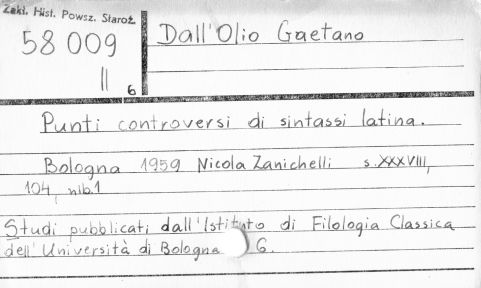 Zakł. Hist. Powsz. Staroż.
58 009
II 6
Dall'Olio Gaetano
Punti controversi di sintassi latina.
Bologna 1959 Nicola Zanichelli s. XXXVIII,
104, nlb. 1
Studi pubblicati dall'Istituto di Filologia Classica
dell'Università di Bologna 6.